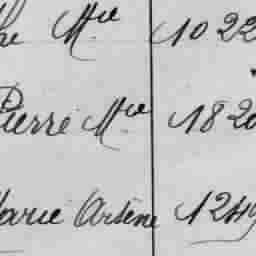 Mie 1022
Pierre Mie 182
Marie Arsène 1249